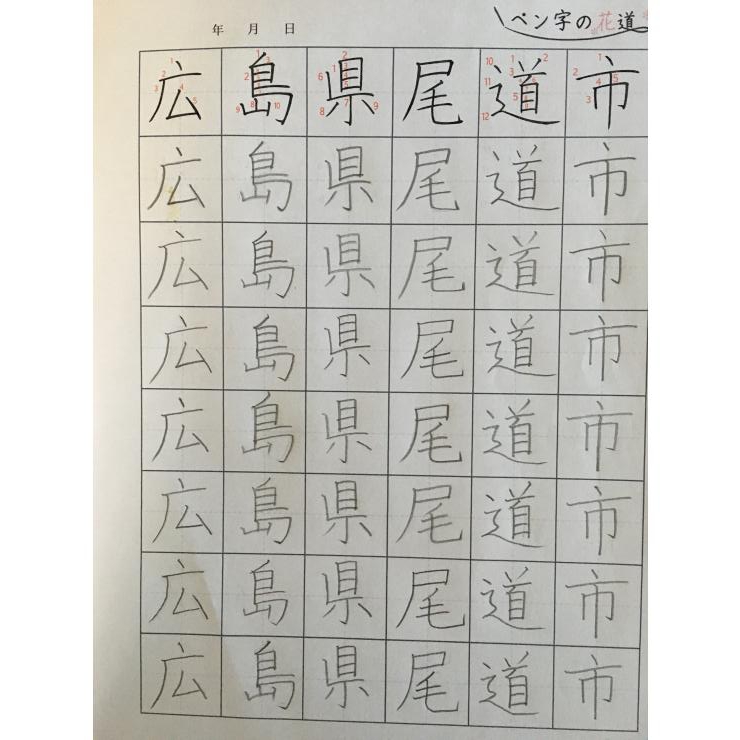 年 月 日
ペン字の花道
広島県尾道市
広島県尾道市
広島県尾道市
広島県尾道市
広島県尾道市
広島県尾道市
広島県尾道市
広島県尾道市